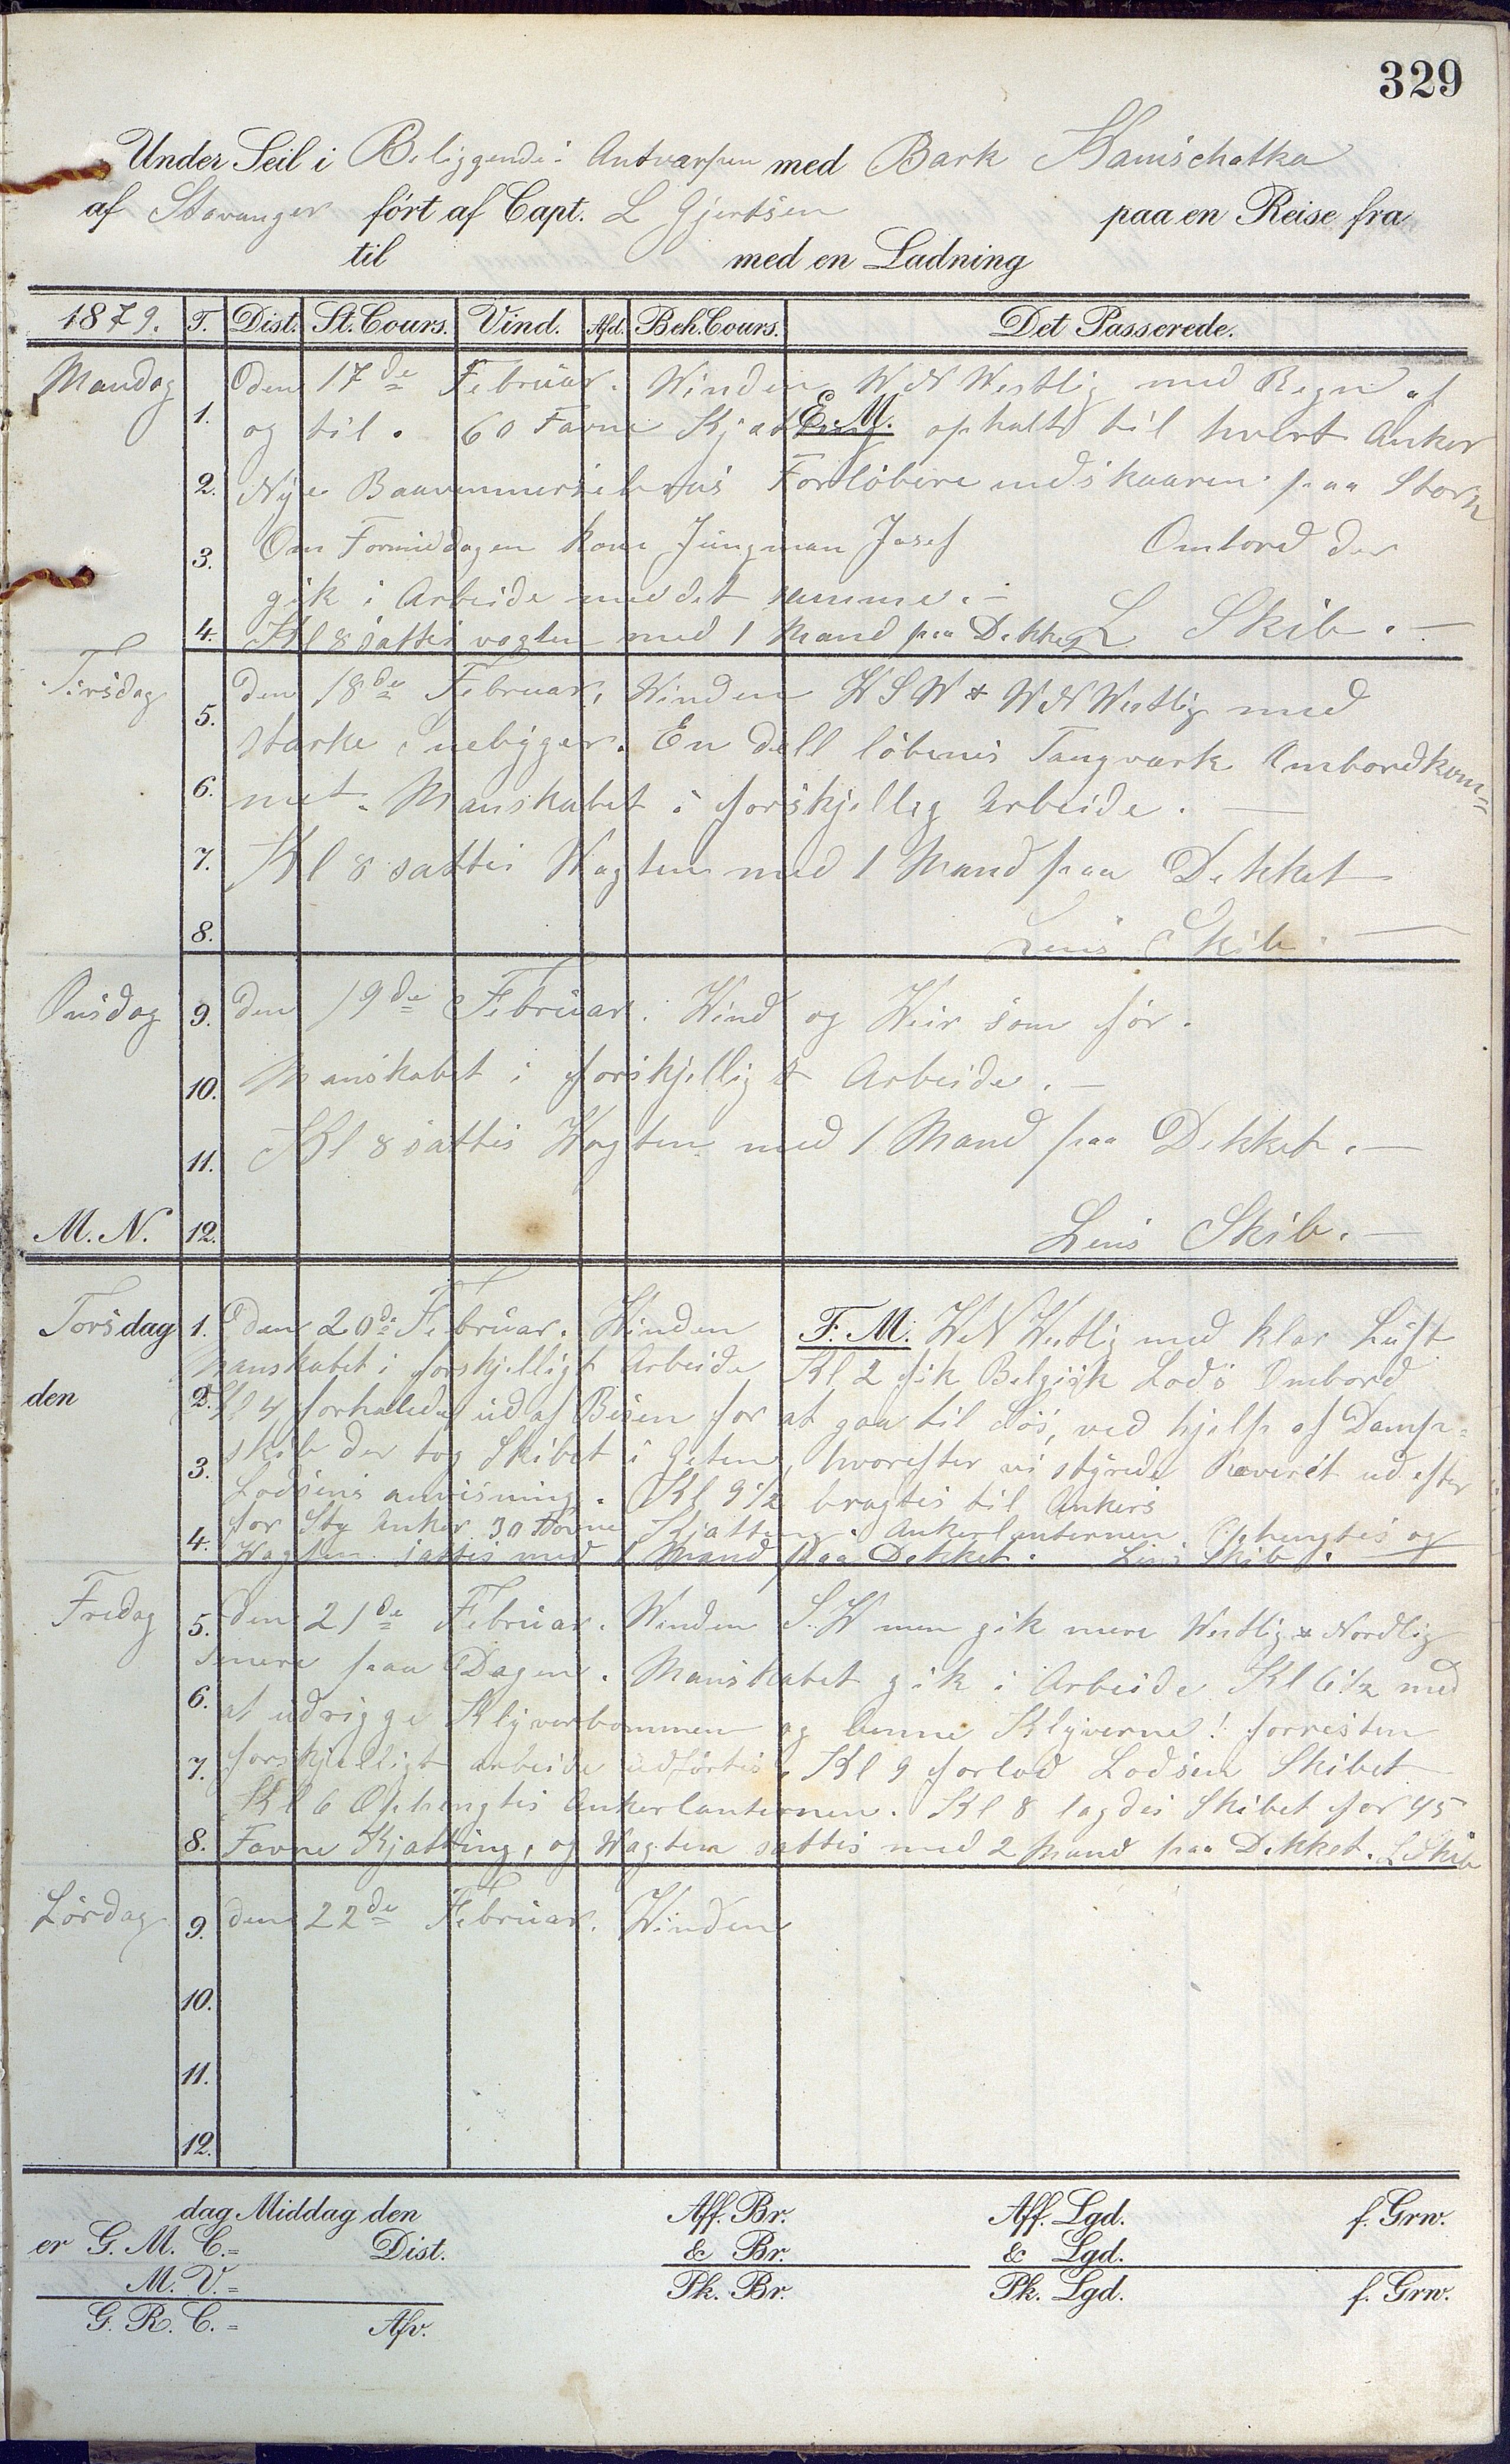 329
Under Seil i Beliggende i Antverpen med Bark Kamschatka
af Stavanger ført af Capt. L Gjertsen paa en Reise fra
til med en Ladning
1879. T. Dist. St. Cours. Vind. Afd. Beh. Cours. Det Passerede.
Mandag den 17de Februar. Winden WNWestlig med Regn af
1. og til. 60 Favne Kjætting E. M. ophalt til hvert Anker
2. Nye Forløbere indskaaren paa Stor
3. Om Formiddagen kom Jungman Josef Ombord der
gik i Arbeide med det samme. —
4. Kl 8 sattes vagten med 1 Mand paa Dekket L Skib. —
Tirsdag den 18de Februar, Winden WSW & WNWestlig med
5. starke Snebyger. En dell løbenes Taugværk Ombordkom=
6. met. Manskabet i forskjellig Arbeide. —
7. Kl 8 sattes Wagten med 1 Mand paa Dekket
8. Lens Skib. —
Onsdag 9. den 19de Februar. Wind og Weir som før.
10. Manskabet i forskjelligt Arbeide. —
11. Kl 8 sattes Wagten med 1 Mand paa Dekket. —
M. N. 12. Lens Skib. —
Torsdag 1. den 20de Februar. Winden F. M. WNWestlig med klar Luft
Manskabet i forskjelligt Arbeide Kl 2 fik Belgisk Lods Ombord
den 2. Kl 4 forhaledes ud af Bäsen for at gaa til Søs, ved hjelp af Damp=
3. skib der tog Skibet i , hvorefter vi styrede Reveret ud efter
Lodsens anvisning. Kl 9½ bragtes til Ankers
for Stb Anker 30 Favne Kjætting. Ankerlanternen Ophengtes og
4. Wagten sattes med 1 Mand paa Dekket. Lens Skib. —
Fredag 5. den 21de Februar. Winden S.W men gik mere Westlig & Nordlig
senere paa Dagen. Manskabet gik i Arbeide Kl 6½ med
6. at udrigge Klyverbommen og Klyverne! forresten
7. forskjelligt arbeide udførtes. Kl 9 forlod Lodsen Skibet
Kl 6 Ophengtes Ankerlanternen. Kl 8 lagdes Skibet for 45
8. Favne Kjætting, og Wagten sattes med 2 Mand paa Dekket. L Skib
Lørdag 9. den 22de Februar. Winden
10.
11.
12.
dag Middag den Aff. Br. Aff. Lgd. f. Grw.
er G. M. C.= Dist. & Br. & Lgd.
M. V.= Pk. Br. Pk. Lgd. f. Grw.
G. R. C.= Afv.